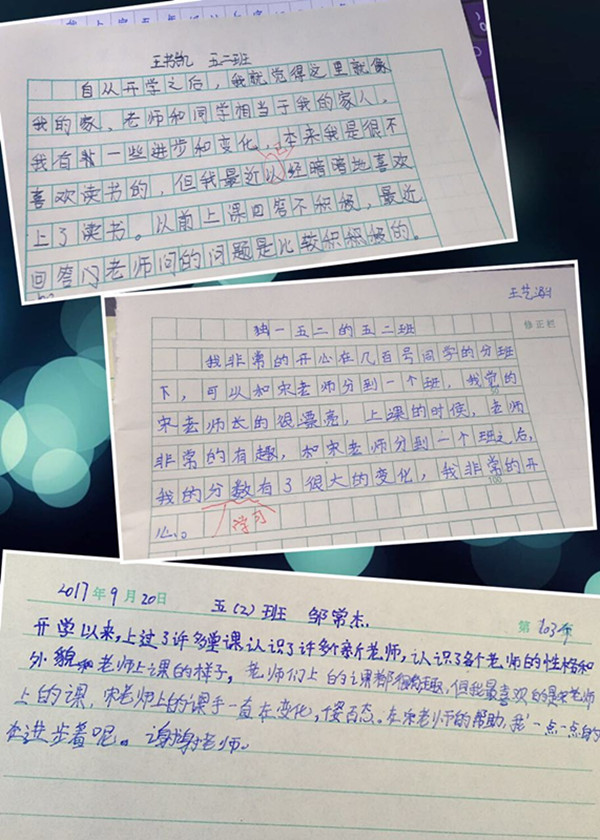 王书凯 五二班
自从开学之后，我就觉得这里就像
我的家、老师和同学相当于我的家人。
我有我一些进步和变化，本来我是很不
喜欢读书的，但我最近以经暗暗地喜欢
已
上了读书。以前上课回答不积极，最近
回答问老师问的问题是比较积极的。
王艺
独一五二的五二班
修正栏
我非常的开心在几百号同学的分班
下，可以和宋老师分到一个班，我觉的
宋老师长的很漂亮，上课的时候，老师
非常的有趣，和宋老师分到一个班之后，
我的分数有了很大的变化，我非常的开
100
心。
学习
2017年9月20日 五(2)班 邹常杰. 第103页
开学以来，上过了许多堂课认识了许多个新老师，认识了各个老师的性格和
外貌和老师上课的样子，老师们上的课都很有趣，但我最喜欢的是宋老师
上的课，宋老师上的课手一直在变化，千姿百态。在宋老师的帮助，我一点一点的
在进步着呢。谢谢老师。